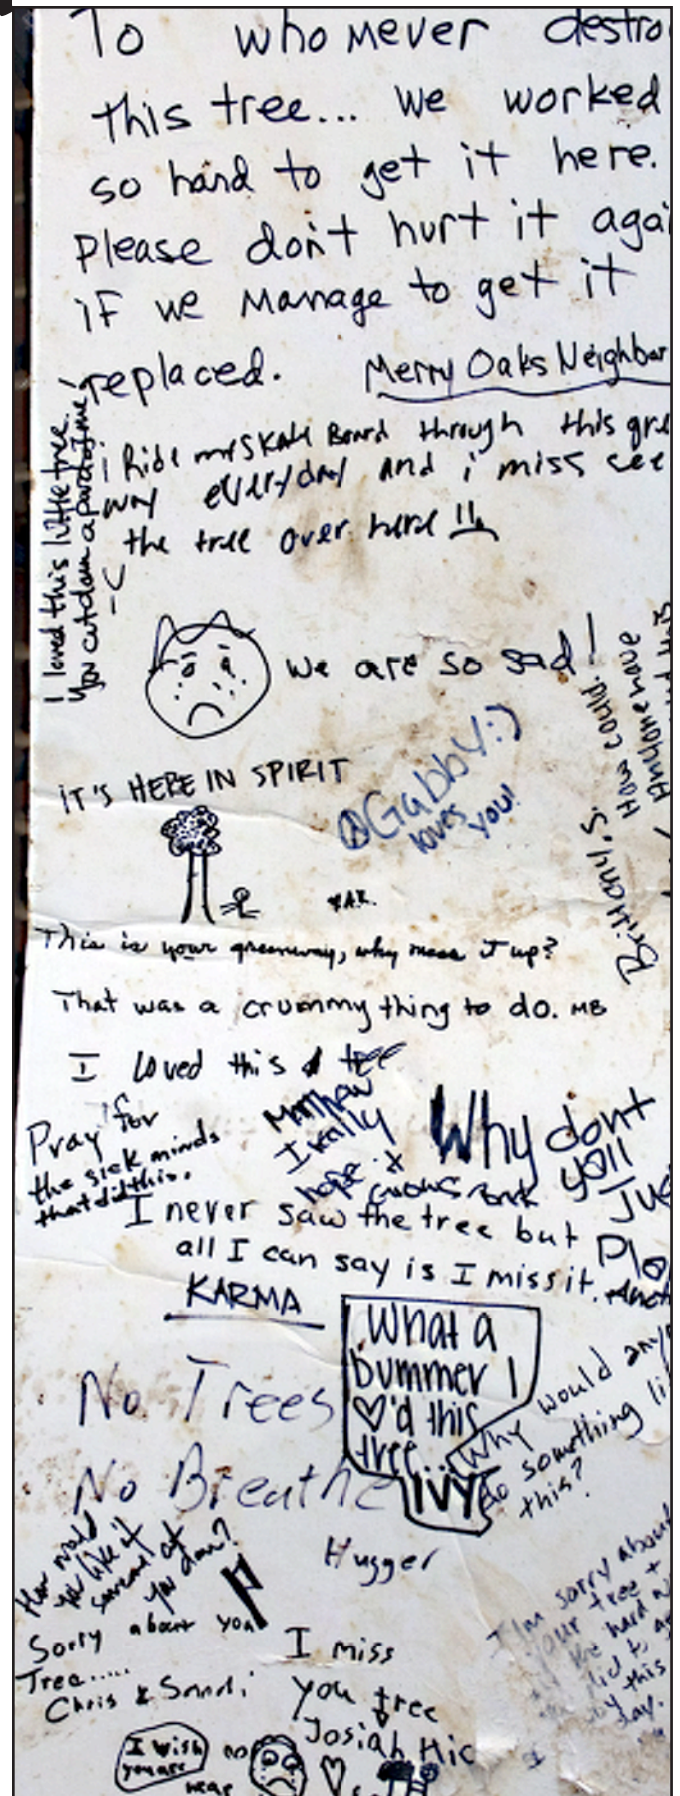 To whomever destro
this tree... we worked
so hard to get it here.
Please don't hurt it agai
if we manage to get it
replaced. Merry Oaks Neighbor
I loved this little tree.
You cut down a part of me!
i Ride my Skate Board through this gre
way everyday and i miss see
the tree over here !!
we are so sad!
IT'S HERE IN SPIRIT
@Gabby :)
loves you!
Brittany S.
How could
Anyone have
This is your greenway, why mess it up?
That was a crummy thing to do. MB
I loved this tree
Pray for
the sick minds
that did this.
Matthew
I really
hope it
grows back
Why dont
yall
Jus
Pla
Anot
I never saw the tree but
all I can say is I miss it.
KARMA
What a
bummer I
♡'d this
tree...
IVY
Why would any
do something li
this?
No Trees
No Breathe
Hugger
How would
you like it
someone cut
you down?
Sorry about you
Tree.....
Chris & Sandi
I miss
you tree
Josiah Hic
I'm sorry about
your tree +
the hard w
did to
this
day.
I wish
you are
near